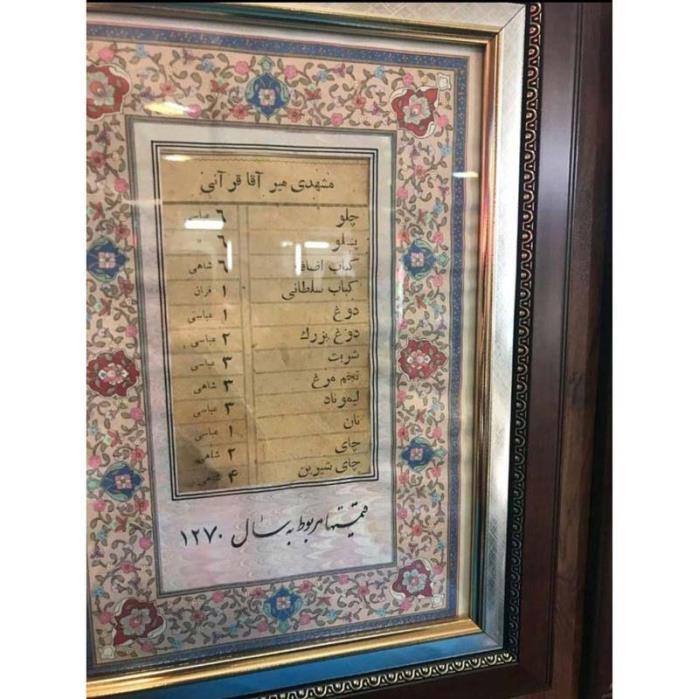 مشهدی میر آقا قرآنی
چلو ۶ عباسی
پلو ۶
کباب اضافه ۶ شاهی
کباب سلطانی ۱ قران
دوغ ۱ عباسی
دوغ بزرگ ۲ عباسی
شربت ۳ عباسی
تخم مرغ ۳ شاهی
لیموناد ۳ عباسی
نان ۱ عباسی
چای ۲ شاهی
چای شیرین ۴ شاهی
قیمتها مربوط به سال ۱۲۷۰